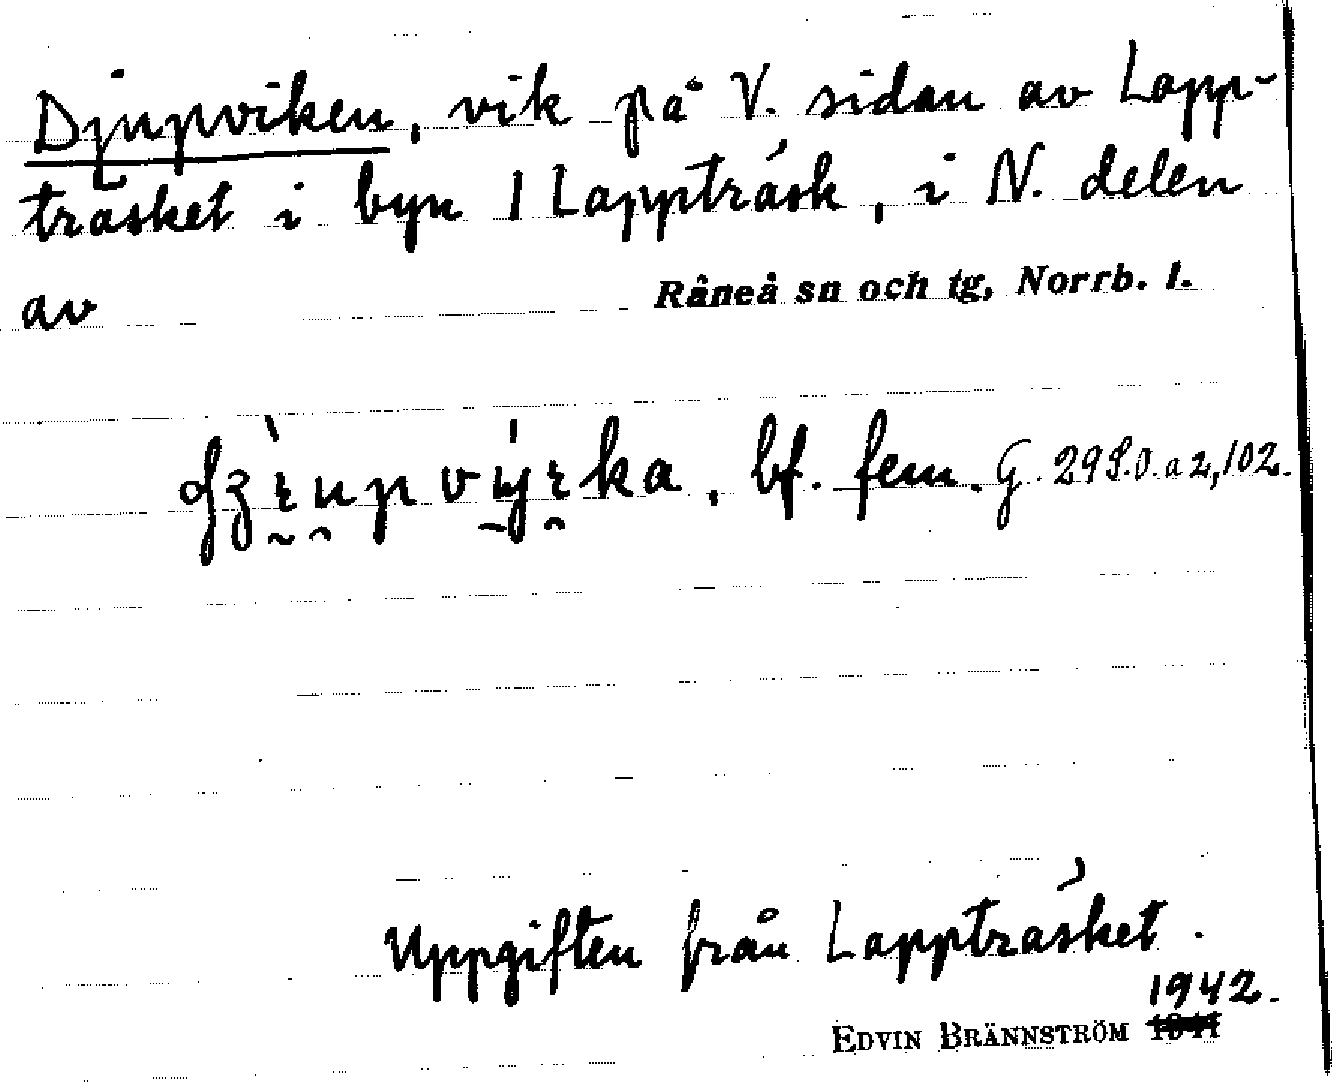 Djupviken, vik på V. sidan av Lapp-
träsket i byn 1 Lappträsk, i N. delen
av Råneå sn och tg, Norrb. l.
bf. fem. G. 29 S.O. a 2, 102.
Uppgiften från Lappträsket.
1942.
EDVIN BRÄNNSTRÖM 1941